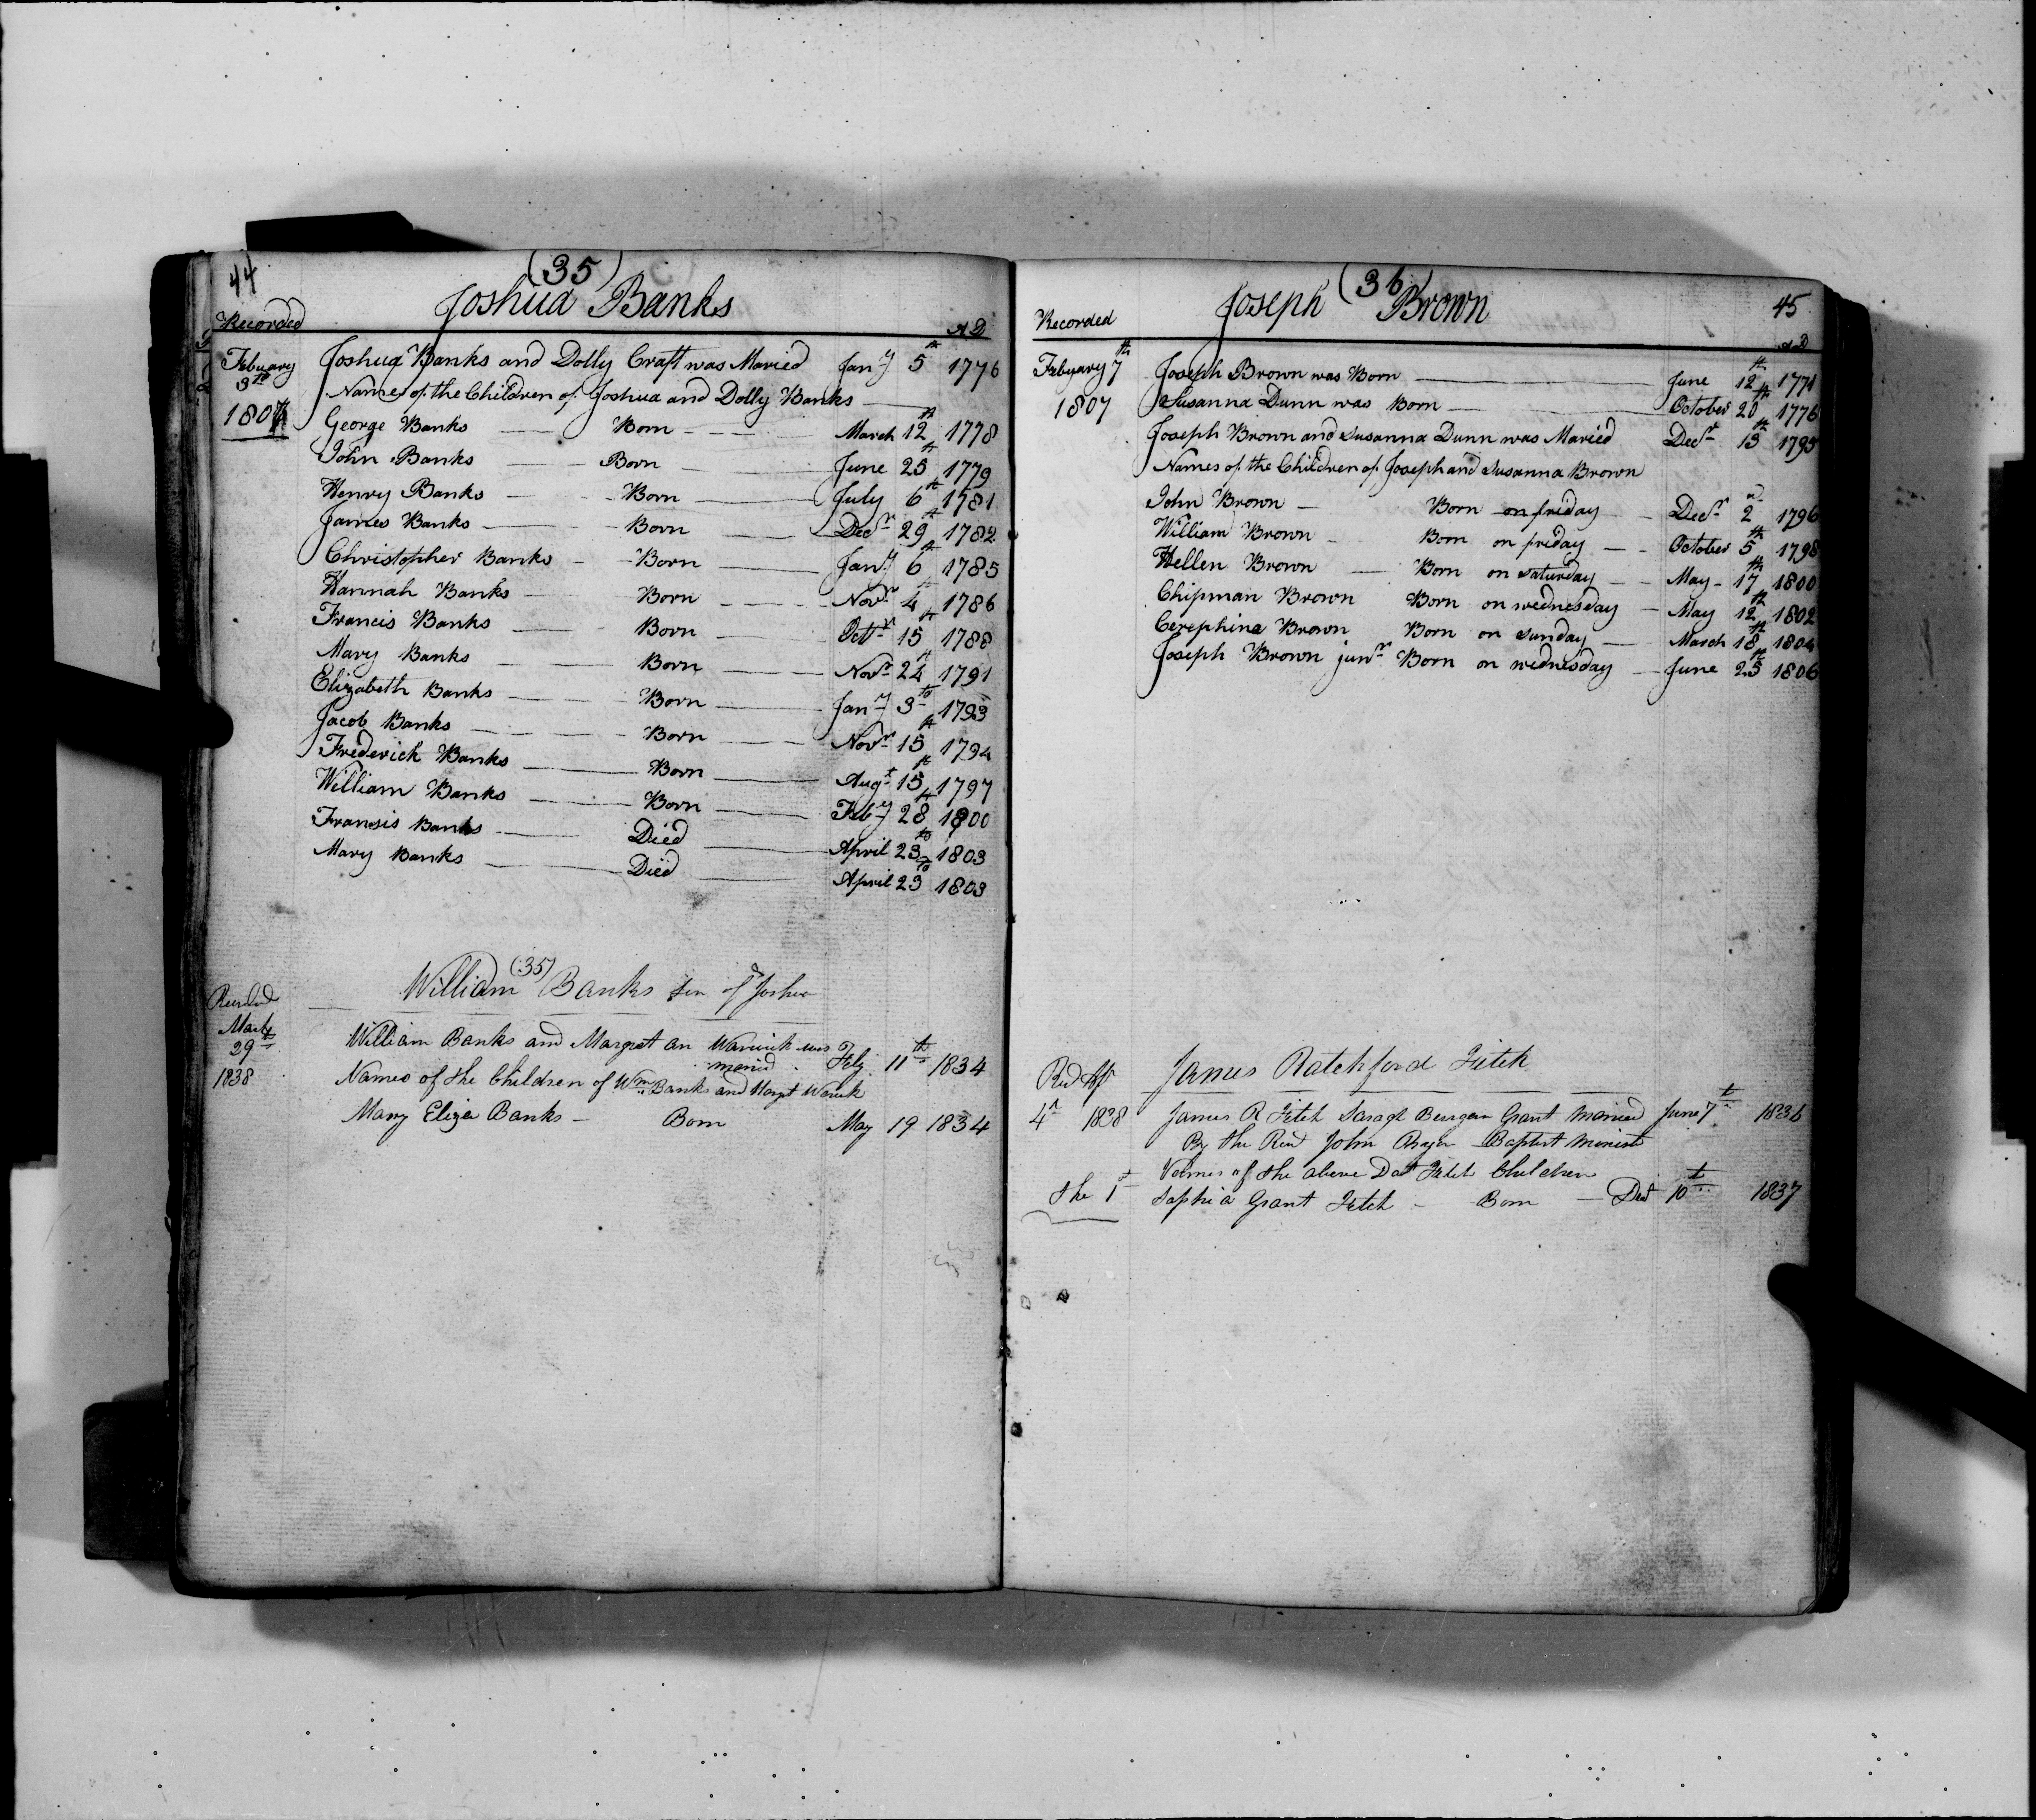 44
(35)
Joshua Banks
Recorded A D
Febuary 3th 1807
Joshua Banks and Dolly Craft was Maried Jany 5th 1776
Names of the Children of Joshua and Dolly Banks
George Banks Born March 12th 1778
John Banks Born June 25th 1779
Henry Banks Born July 6th 1781
James Banks Born Decr 29th 1782
Christopher Banks Born Jany 6th 1785
Hannah Banks Born Novr 4th 1786
Francis Banks Born Octr 15th 1788
Mary Banks Born Novr 24th 1791
Elizabeth Banks Born Jany 3th 1793
Jacob Banks Born Novr 15th 1794
Frederick Banks Born Augt 15th 1797
William Banks Born Feby 28th 1800
Fransis Banks Died April 23th 1803
Mary Banks Died April 23th 1803
(35)
William Banks Son of Joshua
Recorded
March 29th 1838
William Banks and Margret an Warwick was maried Feby 11th 1834
Names of the Children of Wm Banks and Margt Warwick
Mary Eliza Banks Born May 19 1834
(36) 45
Joseph Brown
Recorded A D
Febuary 7th 1807
Joseph Brown was Born June 12th 1771
Susanna Dunn was Born October 20th 1776
Joseph Brown and Susanna Dunn was Maried Decr 13th 1795
Names of the Children of Joseph and Susanna Brown
John Brown Born on friday Decr 2d 1796
William Brown Born on friday October 5th 1798
Hellen Brown Born on Saturday May 17th 1800
Chipman Brown Born on wednesday May 12th 1802
Cerephina Brown Born on Sunday March 18th 1804
Joseph Brown junr Born on wednesday June 25th 1806
James Ratchford Fitch
4 1838 James R Fitch Sarah Grant Maried June 7t 1836
By the Revd John Baptist Minist
Names of the above Fitch Children
the 1t Sophia Grant Fitch Born 10t 1837